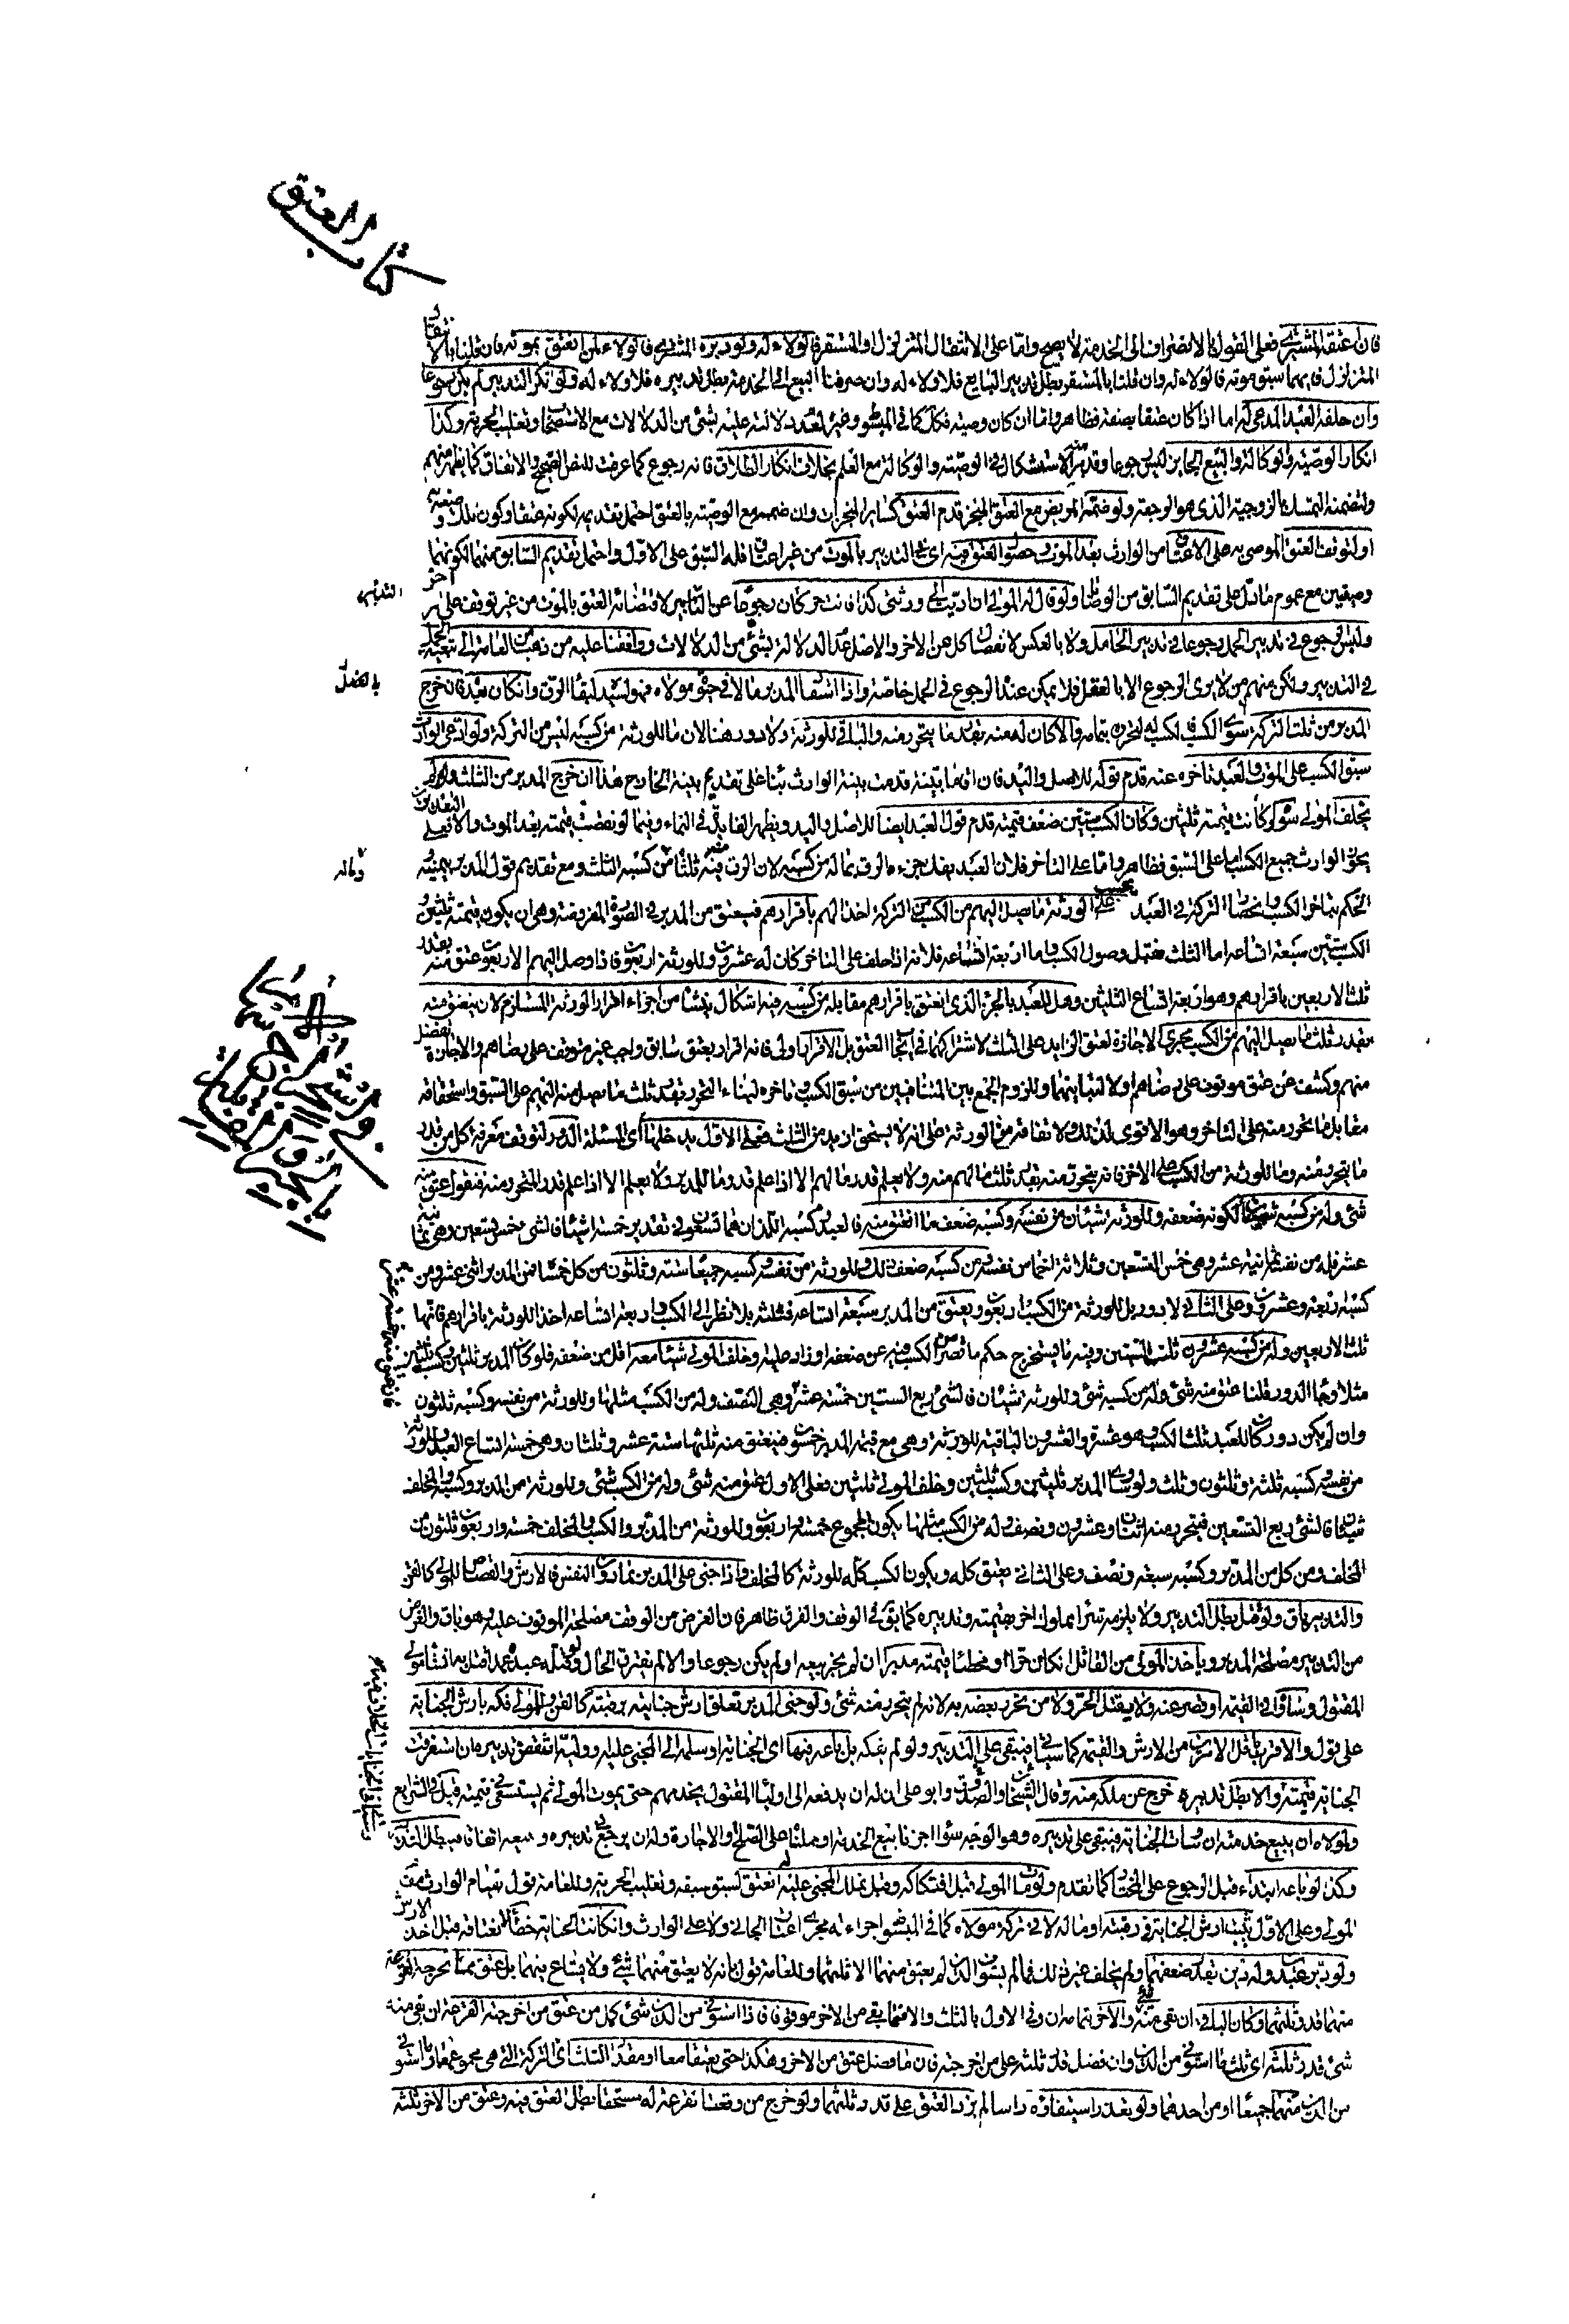 كتاب العتق
فان عتقه المشتري فعلى القول بالانصراف الى الخدمة لا يصح واما على الانتقال المتزلزل او المستقر فالولاء له ولو دبره المشتري فالولاء لمن انعتق بموته فان قلنا بالانتقال
المتزلزل فايهما سبق موته فالولاء له وان قلنا بالمستقر بطل تدبير البايع فلا ولاء له وان صرفنا البيع الى الخدمة بطل تدبيره فلا ولاء له ولو انكر التدبير لم يكن رجوعا
وان حلفه العبد المدعي له اما اذا كان عتقا بصفة فظاهر واما ان كان وصية فكل كما في المبسوط وغيره لعدم دلالته عليه بشئ من الدلالات مع الاستصحاب وتغليب الحرية وكذا
انكار الوصية والوكالة والبيع الجايز ليس رجوعا وقد مر الاستشكال في الوصية والوكالة مع العلم بخلاف انكار الطلاق فانه رجوع كما عرفت للنص الصحيح والاتفاق كما يظهر منهم
ولتضمنه التمسك بالزوجية الذي هو الرجعة ولو ضمه المريض مع العتق المنجز قدم العتق كساير المنجزات وان ضمه مع الوصية بالعتق احتمل تقديمه لكونه عتقا وكون تلك وصية به
او لتوقف العتق الموصى به على الاعتاق من الوارث بعد الموت وحصول العتق فيه اي في التدبير بالموت من غير اعتاق فله السبق على الاول واحتمل تقديم السابق منهما لكونهما
وصيتين مع عموم ما دل على تقديم السابق من الوصايا ولو قال له المولى ان اديت الى ورثتي كذا فانت حر كان رجوعا عن التدبير لاقتضائه العتق بالموت من غير توقف على امر آخر
وليس الرجوع في تدبير الحمل رجوعا في تدبير الحامل ولا بالعكس لانفصال كل عن الاخر والاصل عدم الدلالة بشئ من الدلالات ووافقنا عليه من ذهب من العامة الى تبعية الحمل
في التدبير ولكن منهم من لا يرى الرجوع الا بالفعل فلا يمكن عنده الرجوع في الحمل خاصة واذا استفاد المدبر مالا في حيوة مولاه فهو لسيده لبقاء الرق وان كان بعده فان خرج
المدبر من ثلث التركة سوى الكسب فالكسب له لتحرره بتمامه والا كان له منه بقدر ما يتحرر منه والباقي للورثة ولا دور هنا لان ما للورثة من كسبه ليس من التركة ولو ادعى الوارث
سبق الكسب على الموت والعبد تاخره عنه قدم قوله للاصل واليد فان اقاما بينة قدمت بينة الوارث بناء على تقديم بينة الخارج هذا ان خرج المدبر من الثلث ولو لم
يخلف المولى سواه وكانت قيمته ثلثين وكان الكسب ستين ضعف قيمته قدم قول العبد ايضا للاصل واليد ويظهر الفايدة في النماء وفيما لو نقصت قيمته بعد الموت والا فعلى التقديرين
يحوز الوارث جميع الكسب اما على السبق فظاهر واما على التاخر فلان العبد يفك بجزء الرق بماله من كسبه لان الرق منه ثلثاه وله من كسبه الثلث ومع تقديم قول المدبر بيمينه و
الحكم بتاخر الكسب وانحصار التركة في العبد يحسب على الورثة ما يصل اليهم من الكسب من التركة اخذا لهم باقرارهم فيعتق من المدبر في الصورة المفروضة وهي ان يكون قيمته ثلثين و
الكسب ستين سبعة اتساعه اما الثلث فقبل وصول الكسب واما اربعة اتساعه فلانه اذا حلف على التاخر كان له عشرون وللورثة اربعون فاذا وصل اليهم الاربعون عتق منه بقدر
ثلث الاربعين باقرارهم وهو اربعة اتساع الثلثين وهل للعبد بالجزء الذي انعتق باقرارهم مقابله من كسبه فيه اشكال ينشأ من اجراء اقرار الورثة المستلزم لان يعتق منه
بقدر ثلث ما يصل اليهم من الكسب مجرى الاجازة لعتق الزايد على الثلث لاشتراكهما في ايجاب العتق بل الاقرار اولى فانه اقرار بعتق سابق واجب غير متوقف على رضاهم والاجازة تفضل
منهم وكشف عن عتق موقوف على رضاهم او لا لتباينهما وللزوم الجمع بين المتنافيين من سبق الكسب وتاخره لبناء التحرر بقدر ثلث ما يصل منه اليهم على السبق واستحقاقه
مقابل ما تحرر منه على التاخر وهو الاقوى لذلك ولاتفاقه مع الورثة على انه لا يستحق ازيد من الثلث فعلى الاول يدخلها اي المسئلة الدور لتوقف معرفة كل من قدر
ما يتحرر منه وما للورثة من الكسب على الاخر فانه يتحرر منه بقدر ثلث ما لهم منه ولا يعلم قدر ما لهم الا اذا علم قدر ما للمدبر ولا يعلم الا اذا علم قدر المتحرر منه فنقول عتق منه
شئ وله من كسبه شيئان لكونه ضعفه وللورثة شيئان من نفسه وكسبه ضعف ما انعتق منه فالعبد وكسبه اللذان هما تسعون في تقدير خمسة اشياء فالشئ خمس تسعين وهي ثمانية
عشر فله من نفسه ثمانية عشر وهي خمس التسعين وثلاثة اخماس نفسه ومن كسبه ضعف ذلك وللورثة من نفسه وكسبه جميعا ستة وثلثون من كل خمسا فمن المدبر اثنى عشر ومن
كسبه اربعة وعشرون وعلى الثاني لا دور بل للورثة من الكسب اربعون ويعتق من المدبر سبعة اتساعه فثلثه بلا نظر الى الكسب واربعة اتساعه اخذا للورثة باقرارهم فانها
ثلث الاربعين وله من كسبه عشرون ثلث الستين ومنه ما يستخرج حكم ما قصر الكسب فيه عن ضعفه او زاد عليه وخلف المولى شيئا معه اقل من ضعفه فلو كان المدبر ثلثين وكسب ثلثين
مثلا وجاء الدور قلنا عتق منه شئ وله من كسبه شئ وللورثة شيئان فالشئ ربع الستين خمسة عشر وهي النصف وله من الكسب مثلها وللورثة من نفسه وكسبه ثلثون
وان لم يكن دور كان للعبد ثلث الكسب وهو عشرة والعشرون الباقية للورثة وهي مع قيمة المدبر خمسون فيعتق منه ثلثها ستة عشر وثلثان وهي خمسة اتساع العبد وللورثة
من نفسه وكسبه ثلثة وثلثون وثلث ولو ساوى المدبر ثلثين وكسب ثلثين وخلف المولى ثلثين فعلى الاول عتق منه شئ وله من الكسب شئ وللورثة من المدبر وكسبه والمخلف
شيئان فالشئ ربع التسعين فيتحرر منه اثنان وعشرون ونصف وله من الكسب مثلها يكون المجموع خمسة واربعون وللورثة من المدبر والكسب والمخلف خمسة واربعون ثلثون من
المخلف ومن كل من المدبر وكسبه سبعة ونصف وعلى الثاني يعتق كله ويكون الكسب كله للورثة كالمخلف واذا جنى على المدبر بما دون النفس فالارش والقصاص للمولى كالقن
والتدبير باق ولو قتل بطل التدبير ولا يلزمه شراء مملوك اخر بقيمته وتدبيره كما يقوى في الوقف والفرق ظاهر فان الغرض من الوقف مصلحة الموقوف عليه وهو باق والغرض
من التدبير مصلحة المدبر وياخذ المولى من القاتل ان كان حرا او مخطئا قيمته مدبرا ان لم يجز بيعه او لم يكن رجوعا والا لم يفترق الحال ولو قتله عبد عمدا قتل به ان شاء مولى
المقتول وساواه في القيمة او قصر عنه ولا يقتل الحر ولا من تحرر بعضه به لانه لم يتحرر منه شئ ولو جنى المدبر تعلق ارش جنايته برقبته كالقن وللمولى فكه بارش الجناية
على قول والاقرب باقل الامرين من الارش والقيمة كما سياتي فيبقى على التدبير ولو لم يفكه بل باعه فيها اي الجناية او سلمه الى المجنى عليه او وليه انتقض تدبيره ان استغرقت
الجناية قيمته والا بطل تدبيره خرج عن ملكه منه وقال الشيخان والصدوق وابو علي ان له ان يدفعه الى اولياء المقتول يخدمهم حتى يموت المولى ثم يستسعى في قيمته قبل وفي الشرايع
ولمولاه ان يبيع خدمته ان ساوت الجناية فيبقى على تدبيره وهو الوجه سواء اجزنا بيع الخدمة او حملناه على الصلح والاجارة وله ان يرجع في تدبيره وبيعه اتفاقا فيبطل التدبير
وكذا لو باعه ابتداء قبل الرجوع على المختار كما تقدم ولو مات المولى قبل افتكاكه وقبل تملك المجنى عليه له انعتق لسبق سببه وتغليب الحرية وللعامة قول بقيام الوارث مقام
المولى وعلى الاول يثبت ارش الجناية في رقبته او ماله لا في تركة مولاه كما في المبسوط اجراء له مجرى اعتاق الجاني ولا على الوارث وان كانت الجناية خطأ لا نعتاقه قبل اخذ الارش
ولو دبر عبدين وله دين بقدر ضعفهما ولم يخلف غير ذلك فما لم يستوف الدين لم يعتق منهما الا ثلثهما وللعامة قول بانه لا يعتق منهما شئ ولا يشاع بينهما بل عتق ممن تخرجه القرعة
منهما قدر ثلثهما وكان الباقي ان بقى منه شئ والاخر بتمامه ان وفى الاول بالثلث والا فما بقى من الاخر موقوفا فاذا استوفى من الدين شئ كمل من عتق من اخرجته القرعة ان بقى منه
شئ قدر ثلثه اي ثلث ما استوفى من الدين وان فضل قدر ثلثه على من اخرجته فان ما فضل عتق من الاخر وهكذا حتى يعتقا معا او مقدار الثلث اي التركة التي هي مجموعهما وما استوفى
من الدين منهما جميعا او من احدهما ولو تعذر استيفاؤه راسا لم يزد العتق على قدر ثلثهما ولو خرج من وقعت القرعة له مستحقا بطل العتق فيه وعتق من الاخر ثلثه